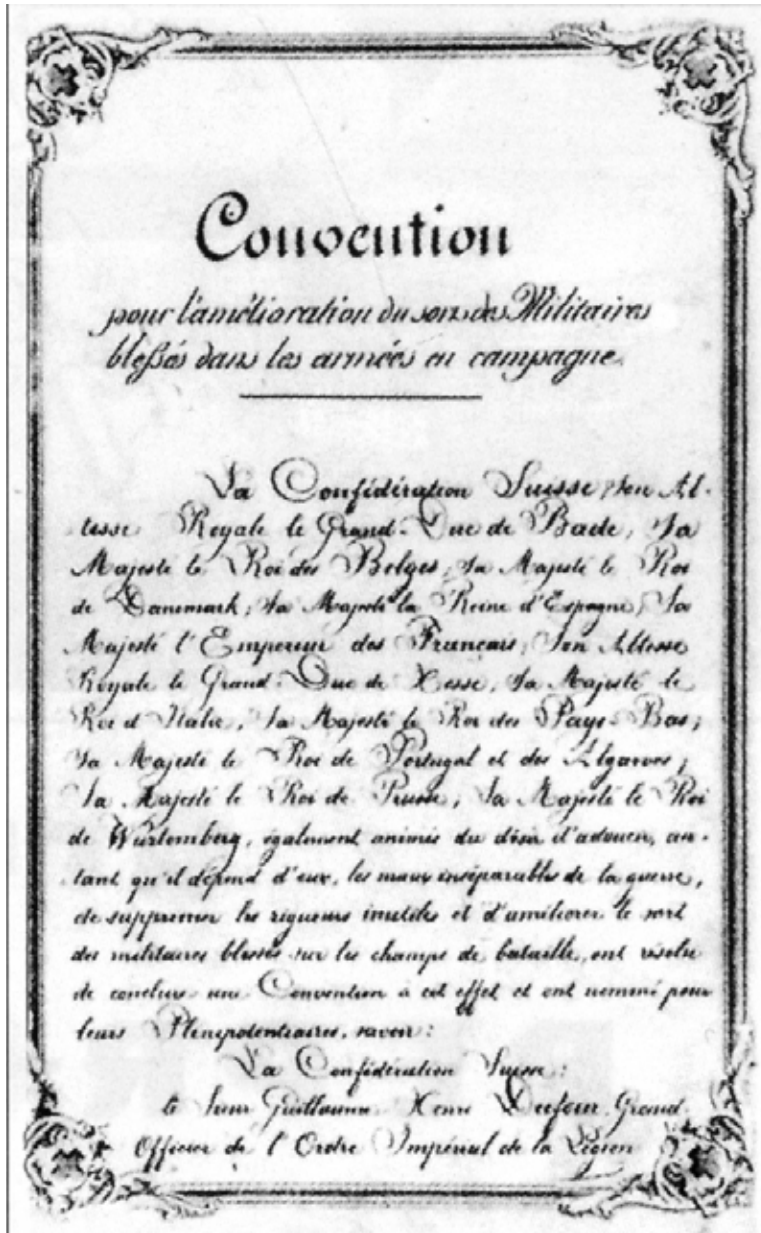 Convention
pour l'amélioration du sort des Militaires
blessés dans les armées en campagne.
La Confédération Suisse; Son Al-
tesse Royale le Grand-Duc de Bade; Sa
Majesté le Roi des Belges; Sa Majesté le Roi
de Danemark; Sa Majesté la Reine d'Espagne; Sa
Majesté l'Empereur des Français; Son Altesse
Royale le Grand-Duc de Hesse; Sa Majesté le
Roi d'Italie; Sa Majesté le Roi des Pays-Bas;
Sa Majesté le Roi de Portugal et des Algarves;
Sa Majesté le Roi de Prusse; Sa Majesté le Roi
de Wurtemberg, également animés du désir d'adoucir, au-
tant qu'il dépend d'eux, les maux inséparables de la guerre,
de supprimer les rigueurs inutiles et d'améliorer le sort
des militaires blessés sur les champs de bataille, ont résolu
de conclure une Convention à cet effet et ont nommé pour
leurs Plénipotentiaires, savoir:
La Confédération Suisse:
le Sieur Guillaume Henri Dufour, Grand
Officier de l'Ordre Impérial de la Légion